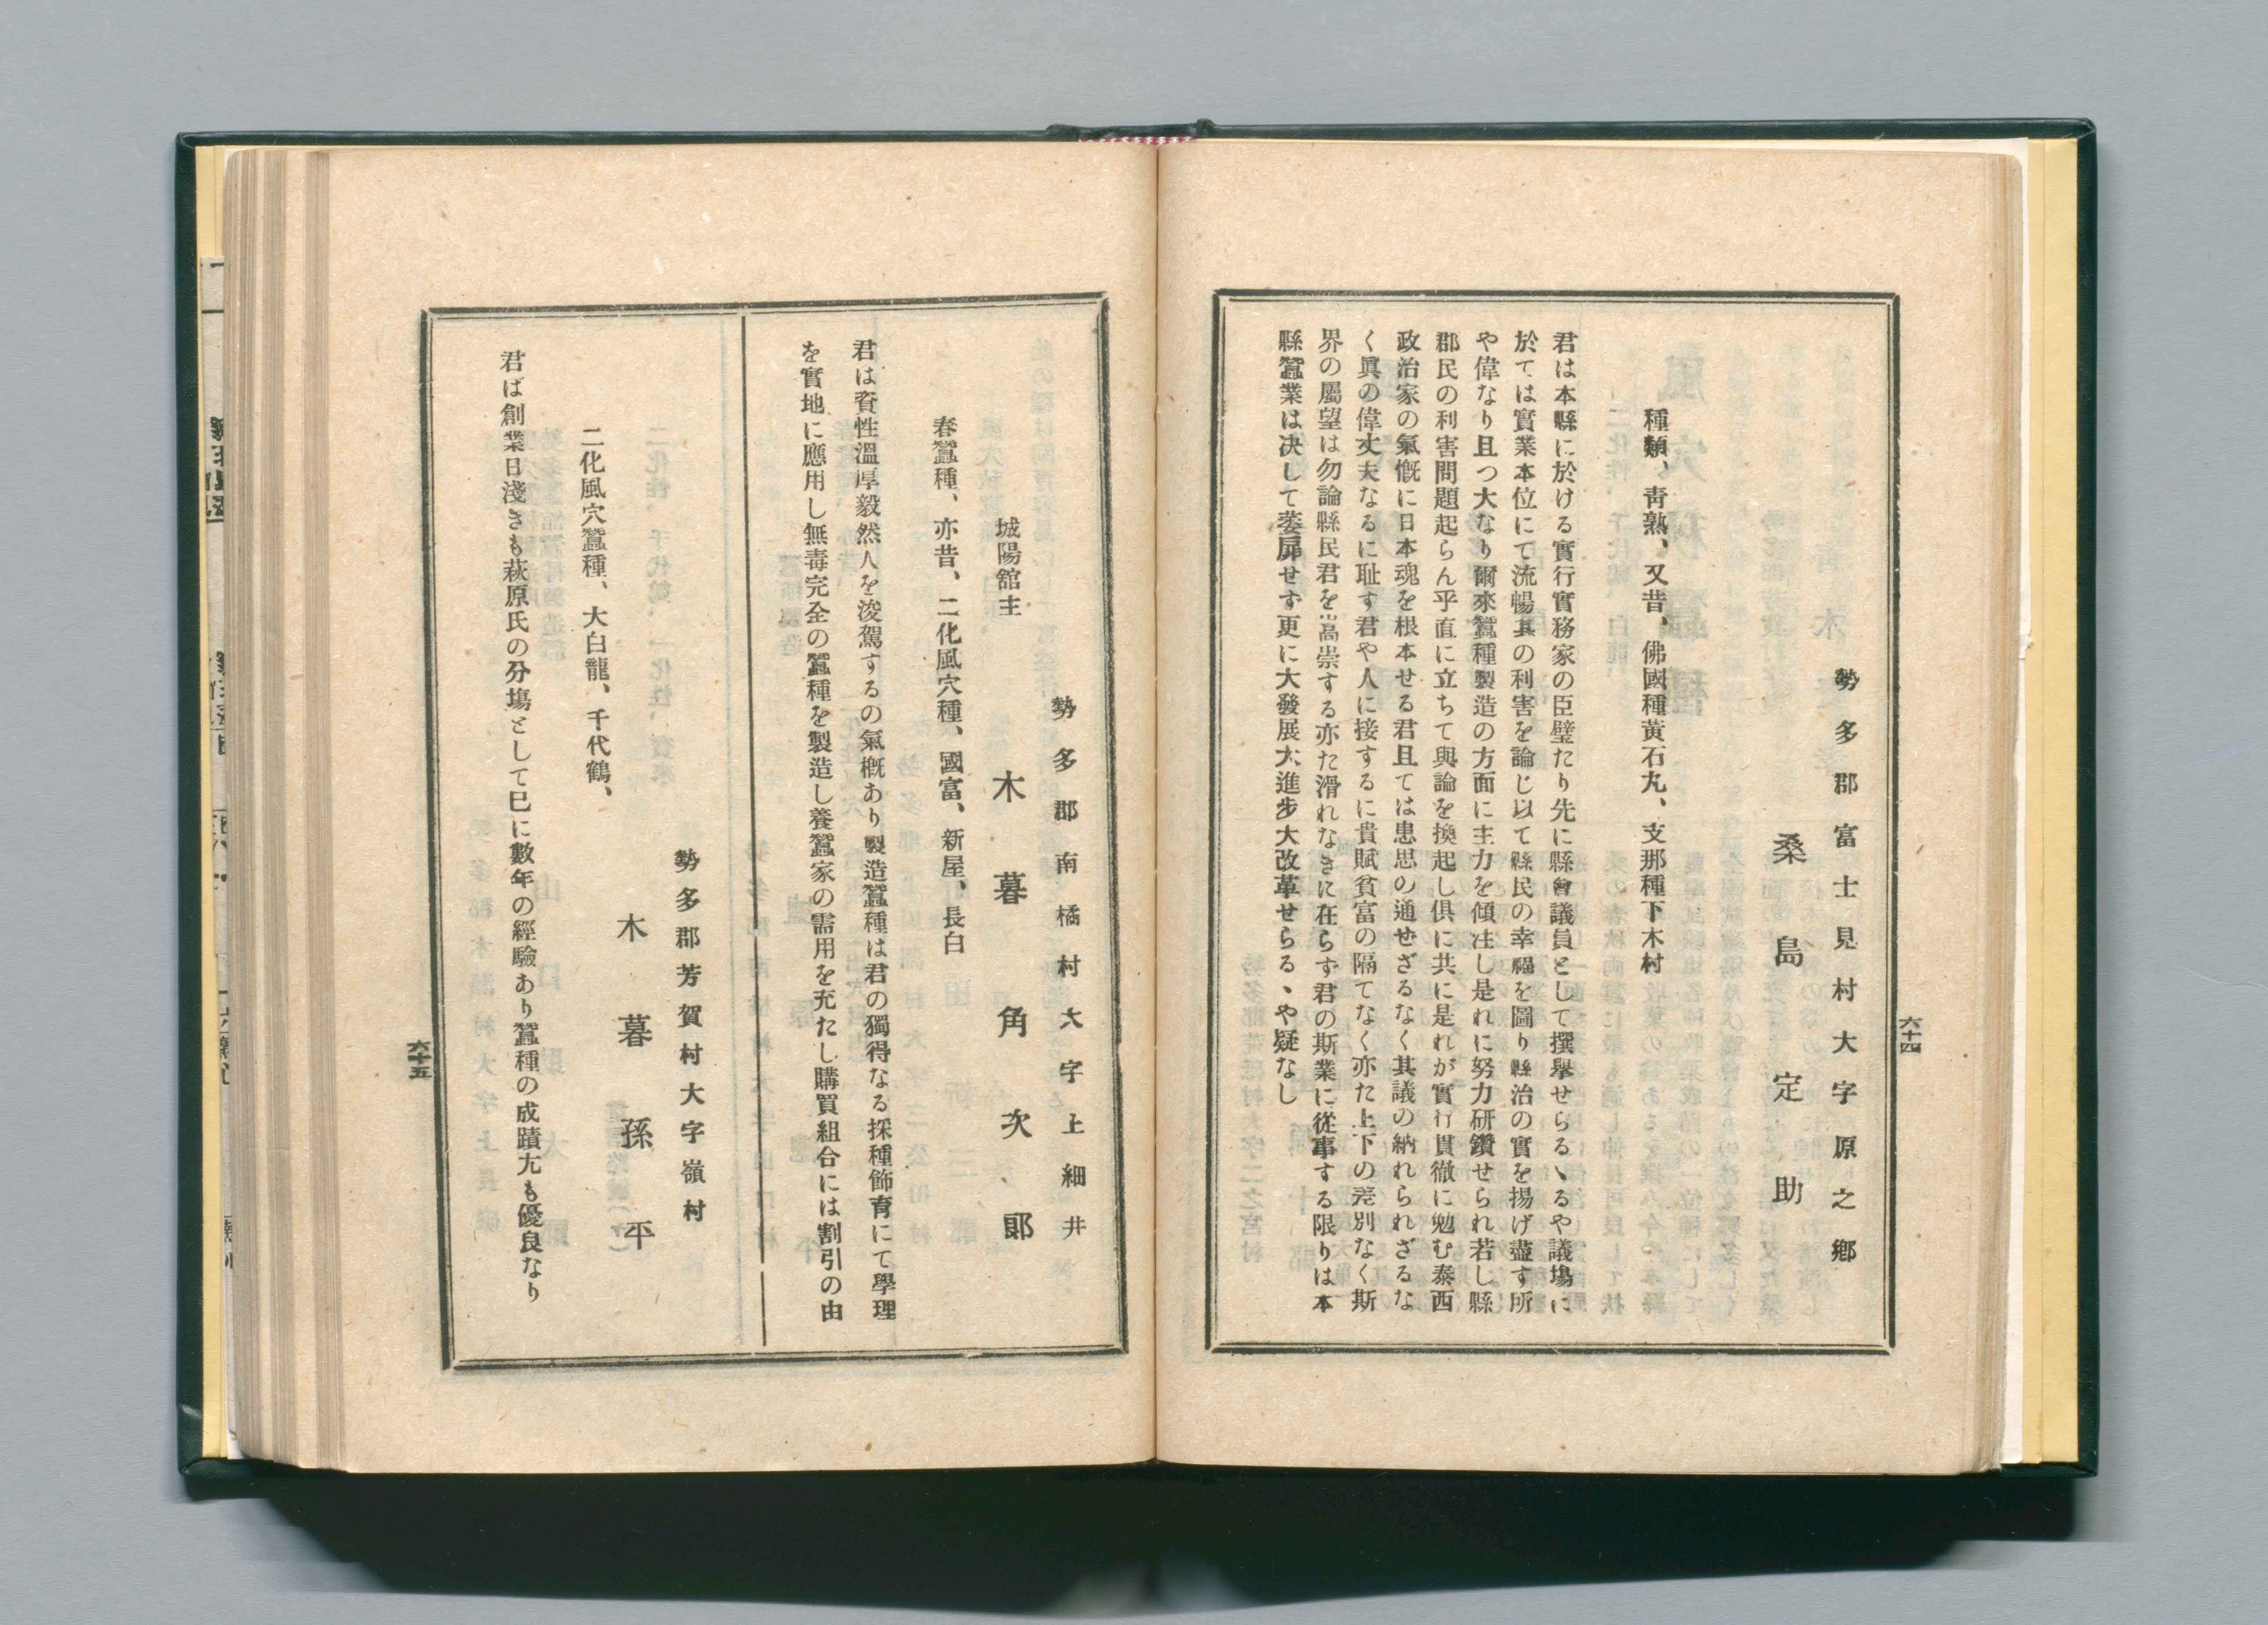 六十四
勢多郡富士見村大字原之郷
桑島定助
種類、靑熟、又昔、佛國種黄石丸、支那種下木村
君は本縣に於ける實行實務家の臣璧たり先に縣會議員として撰擧せらるゝるや議塲に
於ては實業本位にて流暢其の利害を論じ以て縣民の幸福を圖り縣治の實を揚げ盡す所
や偉なり且つ大なり爾來蠶種製造の方面に主力を傾注し是れに努力研鑽せられ若し縣
郡民の利害問題起らん乎直に立ちて與論を換起し倶に共に是れが實行貫徹に勉む泰西
政治家の氣慨に日本魂を根本せる君且ては患思の通せざるなく其議の納れられざるな
く眞の偉丈夫なるに耻す君や人に接するに貴賦貧富の隔てなく亦た上下の差別なく斯
界の屬望は勿論縣民君を嵩崇する亦た滑れなきに在らず君の斯業に從事する限りは本
縣蠶業は决して萎扉せす更に大發展大進步大改革せらるゝや疑なし
勢多郡南橘村大字上細井
城陽舘主
木暮角次郎
春蠶種、亦昔、二化風穴種、國富、新屋、長白
君は資性溫厚毅然人を浚駕するの氣概あり製造蠶種は君の獨得なる採種飾育にて學理
を實地に應用し無毒完全の蠶種を製造し養蠶家の需用を充たし購買組合には割引の由
勢多郡芳賀村大字嶺村
木暮孫平
二化風穴蠶種、大白龍、千代鶴、
君ば創業日淺きも萩原氏の分塲として已に數年の經驗あり蠶種の成蹟尤も優良なり
六十五